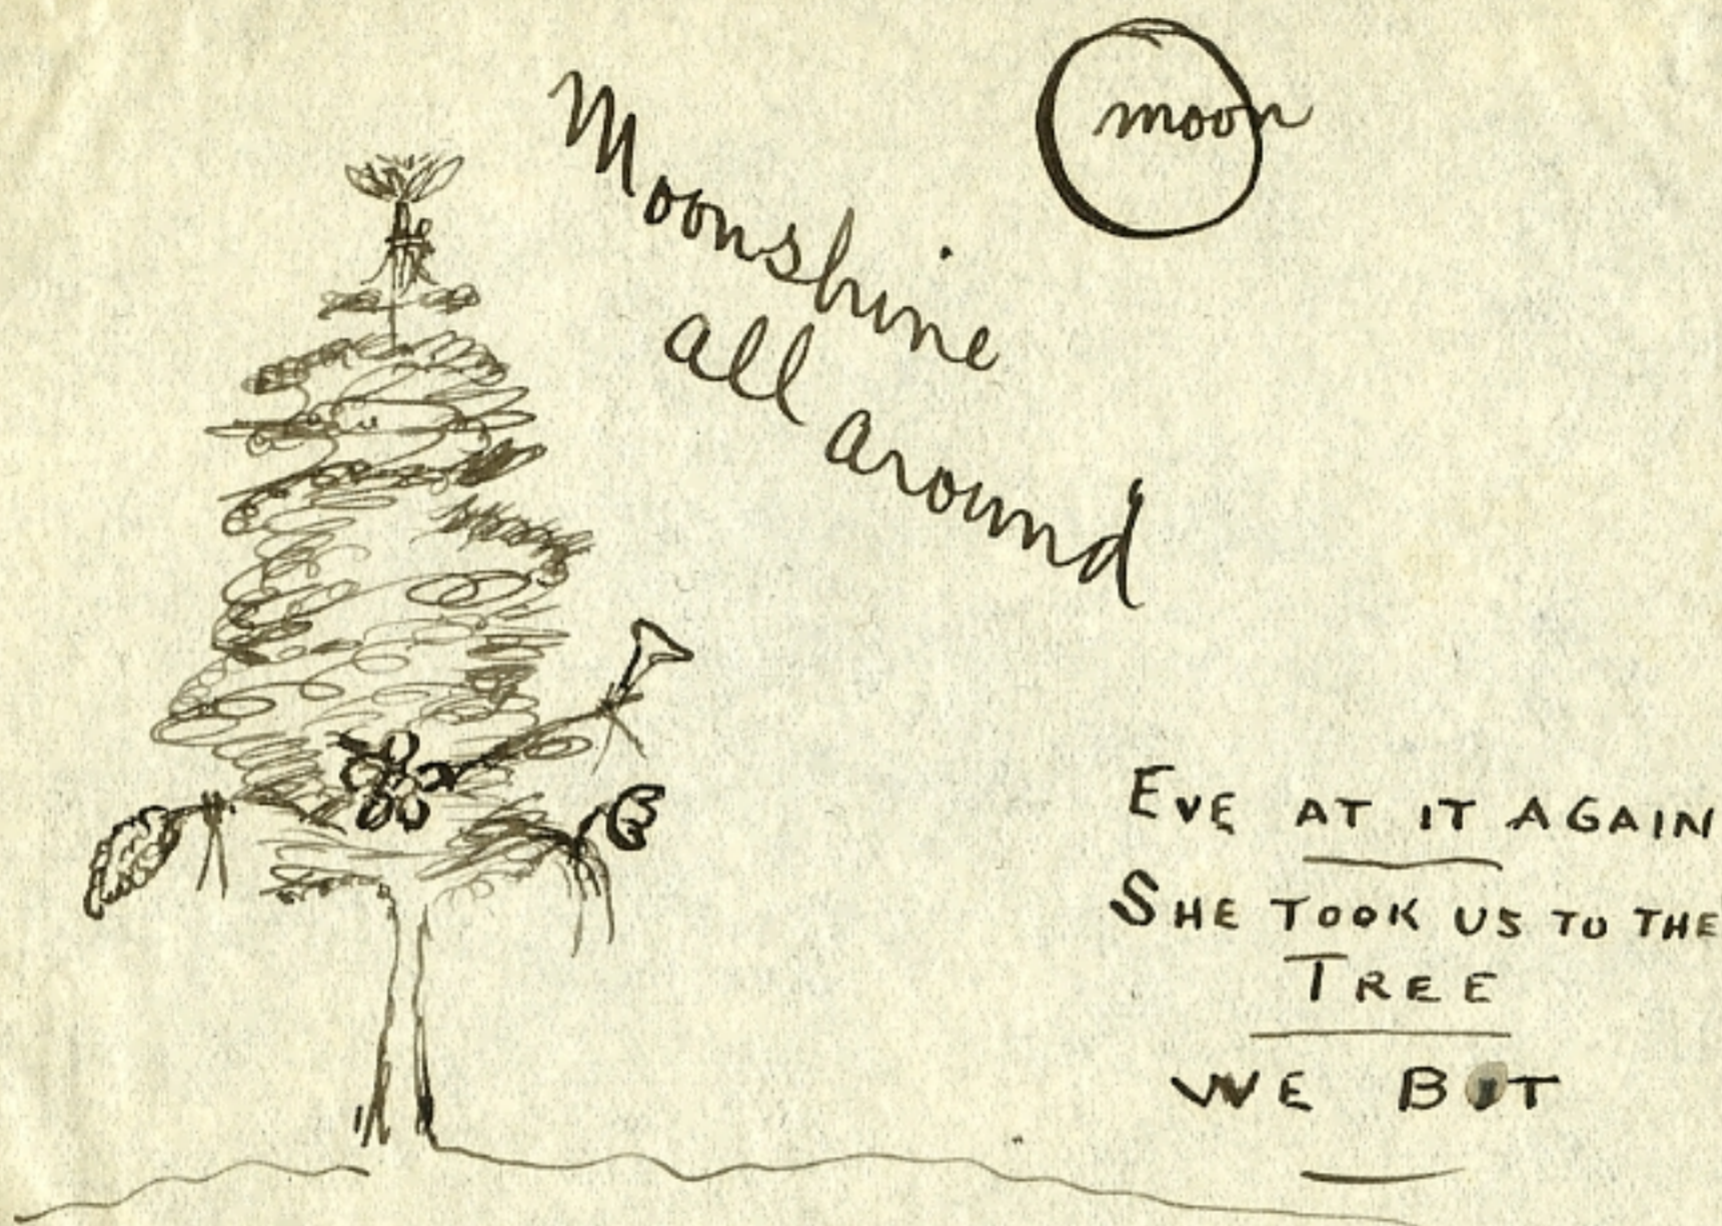 moon
Moonshine
all around
EVE AT IT AGAIN
SHE TOOK US TO THE
TREE
WE BIT